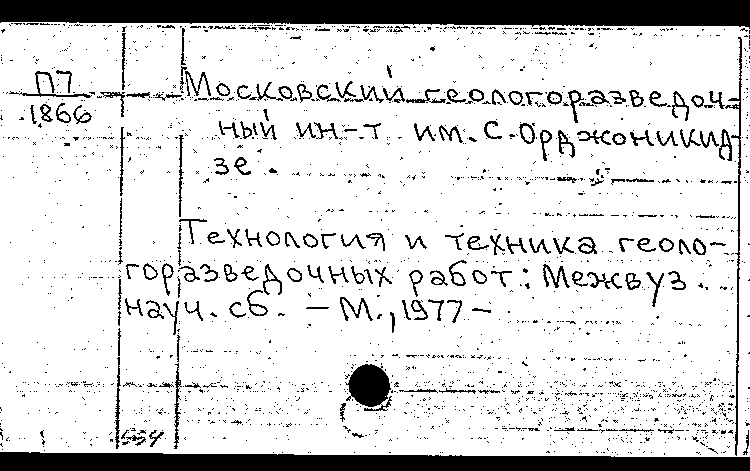 П7
1866
Московский геологоразведоч-
ный ин-т им. С. Орджоникид-
зе.
Технология и техника геоло-
горазведочных работ: Межвуз.
науч. сб. – М., 1977 –